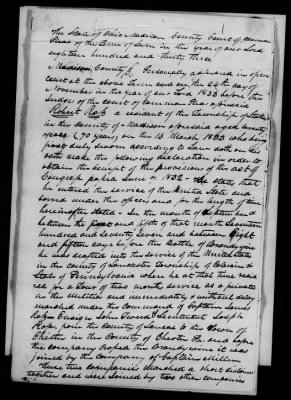 The State of Ohio Madison County Court of Common
Pleas of the Term of June in the year of our Lord
eighteen hundred and thirty three
Madison County Personally appeared in open
court at the above Term and on the 24th day of
November in the year of our Lord 1833 before the
Judges of the court of Common Pleas aforesaid
Robert Ross a resident of the Township of
in the County of Madison aforesaid aged seventy
years (70 years) on the 1st March 1833 who being
first duly sworn according to Law doth on his
oath make the following declaration in order to
obtain the benefit of the provisions of the act of
Congress passed June 1832 - He states that
he entered the service of the United State and
served under the officers and for the length of time
hereinafter stated - In the month of September
between the first and fifth of that month Seventeen
hundred and seventy seven and between eight
and fifteen days before the Battle of Brandywine
he was drafted into the service of the United State
in the county of Lancaster Township of Colerain &
State of Pennsylvania where he at that time resided
for a Tour of two months service as a private
in the Militia and immediately & without delay
marched under the command of Captain James
Ross Ensign John Lieutenant Joseph
Ross from the County of Lancas to the Town of
Chester in the County of Chester Pa. and before
the company crossed the Brandywine it was
joined by the company of Captain
these two companies marched a short distance
together and were joined by two other companies